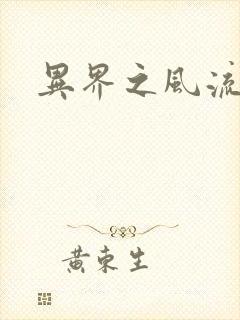 異界之風流
黃東生